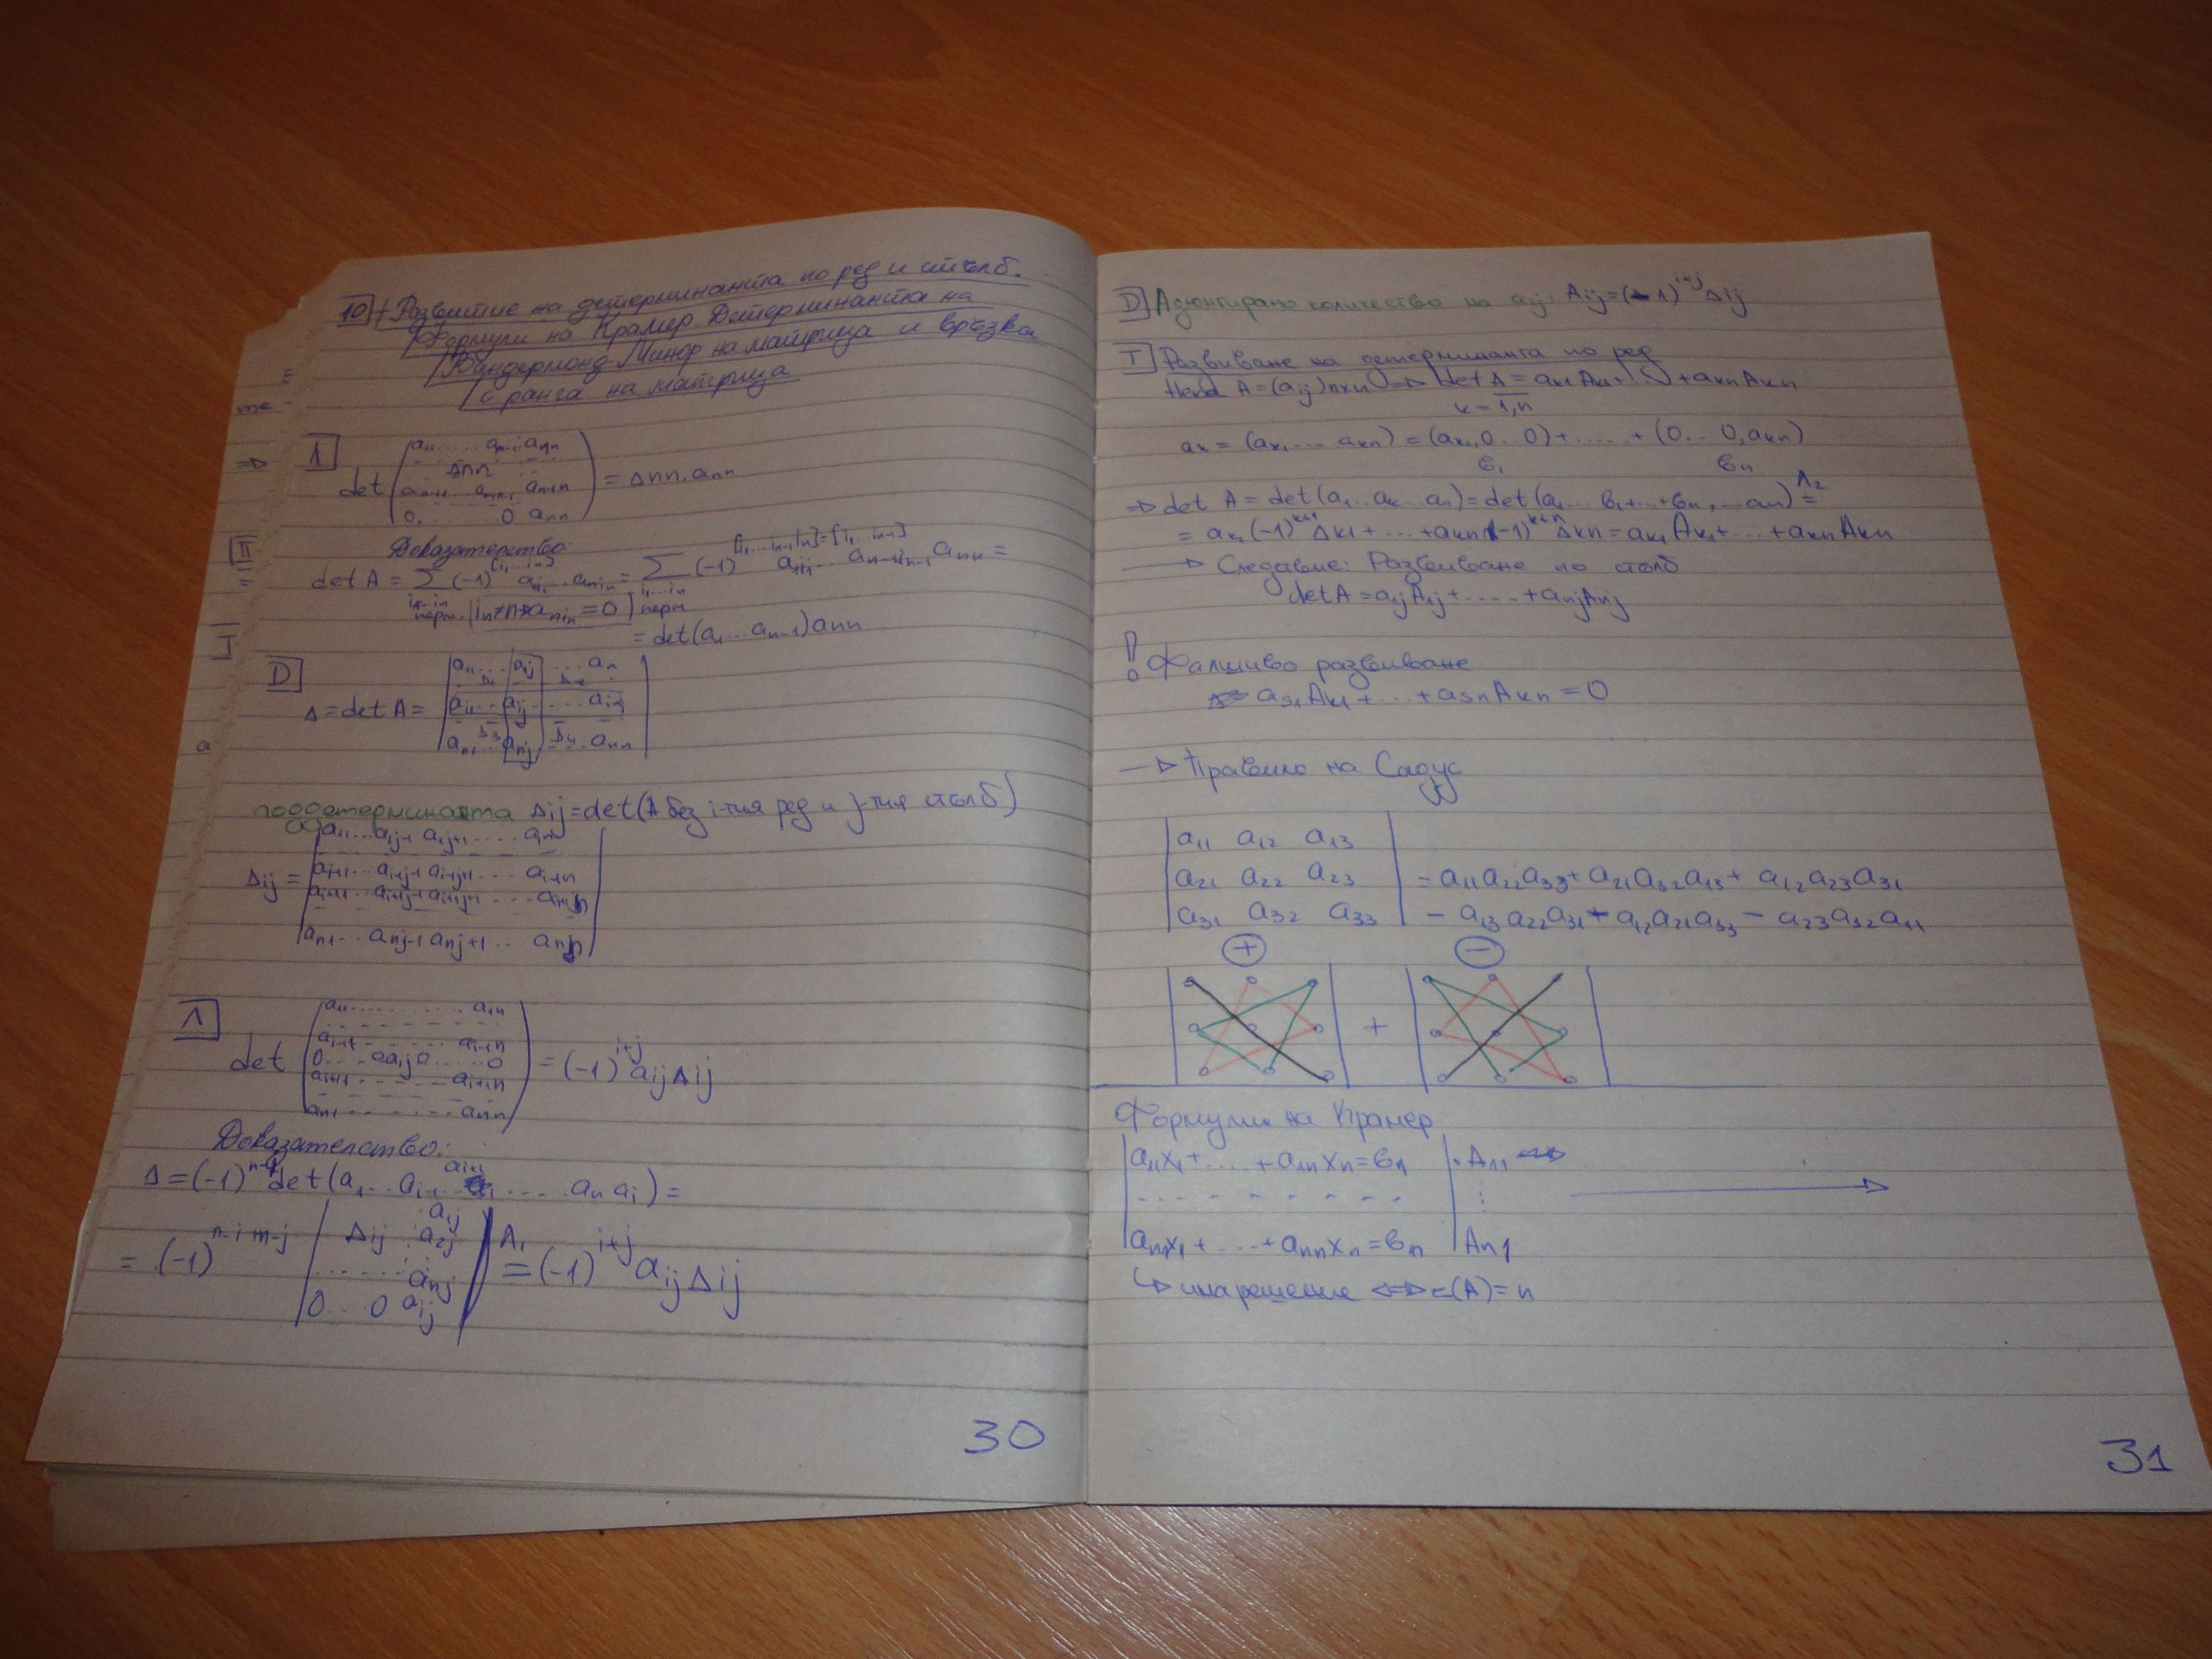 10 Развитие на детерминанта по ред и стълб.
Формули на Крамер. Детерминанта на
Вандермонд. Минор на матрица и връзка
с ранга на матрица
те
⇒
II
=
I
a
1
det (a11 ..... an-1 ann / Δnn / an-11 an-1n-1 an-1n / 0 ... 0 ann) = Δnn.ann
Доказателство:
det A = Σ (-1)^[i1...in] a1i1 ... anin = Σ (-1)^[i1,...in-1,n]=[i1...in-1] a1i1 ... an-1in-1 ann =
i1...in перм. in≠n⇒anin = 0 i1...in перм
= det(a1...an-1)ann
D
Δ = det A = | a11 ... a1j ... an |
| ai1 ... aij ... ain |
| an1 ... anj ... ann |
поддетерминанта Δij = det(A без i-тия ред и j-тия стълб)
Δij = | a11 ... a1j-1 a1j+1 .... a1n |
| ai-11 ... ai-1j-1 ai-1j+1 ... ai-1n |
| ai+11 ... ai+1j-1 ai+1j+1 ... ai+1n |
| an1 ... anj-1 anj+1 ... ann |
Λ
det (a11 ........... a1n / ai-11 ....... ai-1n / 0 ... 0 aij 0 ..... 0 / ai+11 ....... ai+1n / an1 ....... ann) = (-1)^i+j aij Δij
Доказателство:
Δ = (-1)^n-i det(a1...ai-1 ai+1 .... an ai) =
= (-1)^n-i+n-j | Δij a1j a2j ... anj / 0 .. 0 aij | Λ1 = (-1)^i+j aij Δij
30
D Адюнгирано количество на aij: Aij = (-1)^i+j Δij
T Развиване на детерминанта по ред
Нека A = (aij)nxn ⇒ det A = ak1 Ak1 + ... + akn Akn
k = 1,n
ak = (ak1 ... akn) = (ak1, 0..0) + ..... + (0... 0, akn)
в1 вn
⇒ det A = det(a1...ak...an) = det(a1...в1+...+вn,...an) Λ2 =
= ak1(-1)^k+1 Δk1 + ... + akn(-1)^k+n Δkn = ak1 Ak1 + ... + akn Akn
→ Следствие: Развиване по стълб
det A = a1j A1j + ..... + anj Anj
! Фалшиво развиване
as1 Ak1 + ... + asn Akn = 0
→ Правило на Сарус
| a11 a12 a13 |
| a21 a22 a23 | = a11a22a33 + a21a32a13 + a12a23a31
| a31 a32 a33 | - a13a22a31 - a12a21a33 - a23a32a11
+ −
+
Формули на Крамер
| a11x1 + .... + a1nxn = в1 | . A11
- - - - - - - - ⋮
| an1x1 + ... + annxn = вn | An1
↳ има решение ⇔ r(A) = n
31